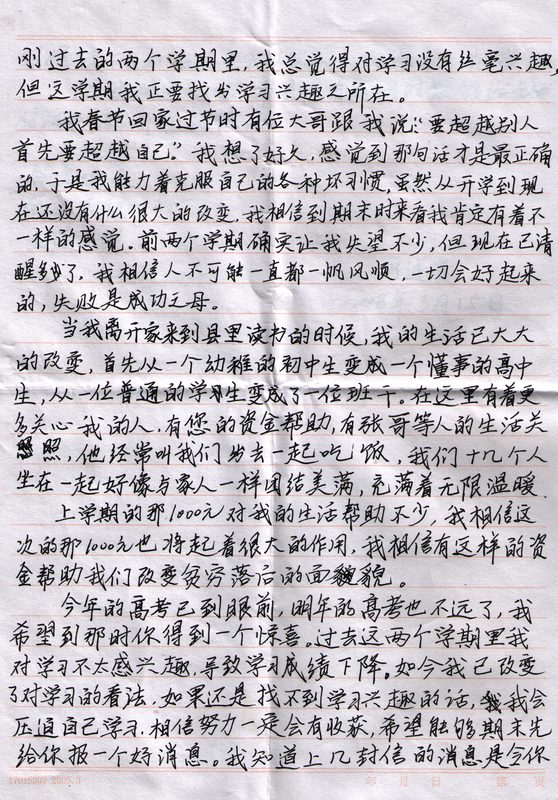 刚过去的两个学期里，我总觉得对学习没有丝毫兴趣，
但这学期我正要找出学习兴趣之所在。
我春节回家过节时有位大哥跟我说：“要超越别人
首先要超越自己。”我想了好久，感觉到那句话才是最正确
的，于是我能力着克服自己的各种坏习惯，虽然从开学到现
在还没有什么很大的改变，我相信到期末时来看我肯定有着不
一样的感觉。前两个学期确实让我失望不少，但现在已清
醒多了，我相信人不可能一直都一帆风顺，一切会好起来
的，失败是成功之母。
当我离开家来到县里读书的时候，我的生活已大大
的改变，首先从一个幼稚的初中生变成一个懂事的高中
生，从一位普通的学生变成了一位班干。在这里有着更
多关心我的人，有您的资金帮助，有张哥等人的生活关
照，他经常叫我们出去一起吃饭，我们十几个人
坐在一起好像与家人一样团结美满，充满着无限温暖
上学期的那1000元对我的生活帮助不少，我相信这
次的那1000元也将起着很大的作用，我相信有这样的资
金帮助我们改变贫穷落后的面貌。
今年的高考已到眼前，明年的高考也不远了，我
希望到那时你得到一个惊喜。过去这两个学期里我
对学习不太感兴趣，导致学习成绩下降。如今我已改变
了对学习的看法，如果还是找不到学习兴趣的话，我会
压迫自己学习，相信努力一定会有收获，希望能够期末先
给你报一个好消息。我知道上几封信的消息是令你
17015207 2005.3 年 月 日 第 页